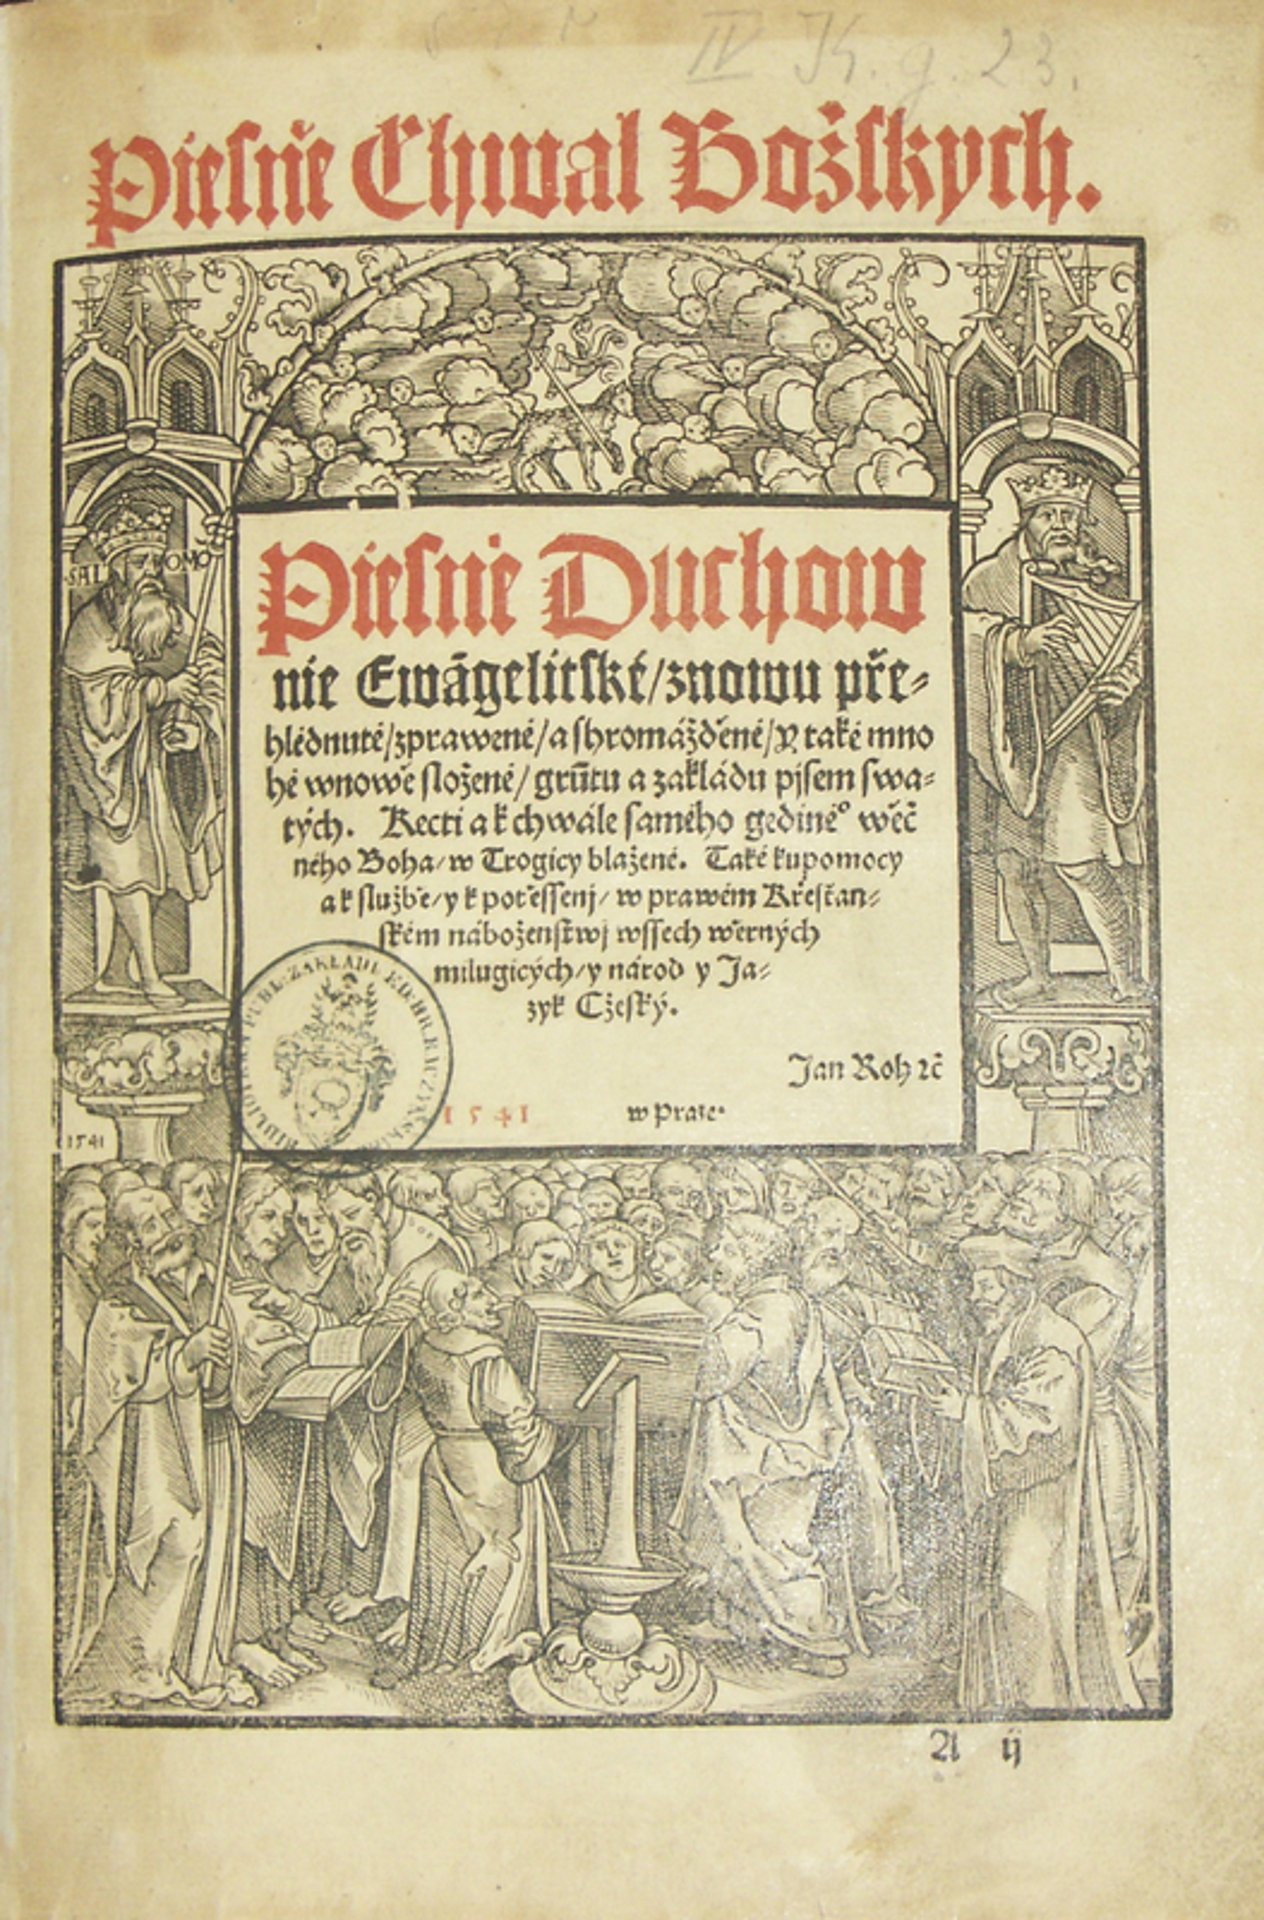 IV K. g. 23.
Piesně Chwal Božskych.
SALOMO
Piesnė Duchow
nie Ewāgelitské/znowu pře-
hlėdnutė/zprawenė/a shromáždėnė/Y takė mno
hė wnowě složenė/grūtu a zakládu pjsem swa-
tých. Kecti a k chwále samého gediné° wěč̄
ného Boha/w Trogicy blaženė. Takė kupomocy
a k službě/y k potėssenj/w prawém Křesťan-
ském náboženstwj wssech wěrných
milugicých/y národ y Ja-
zyk Cžeský.
Jan Roh ꝛč̄
1541 w Praze.
1541
A ij